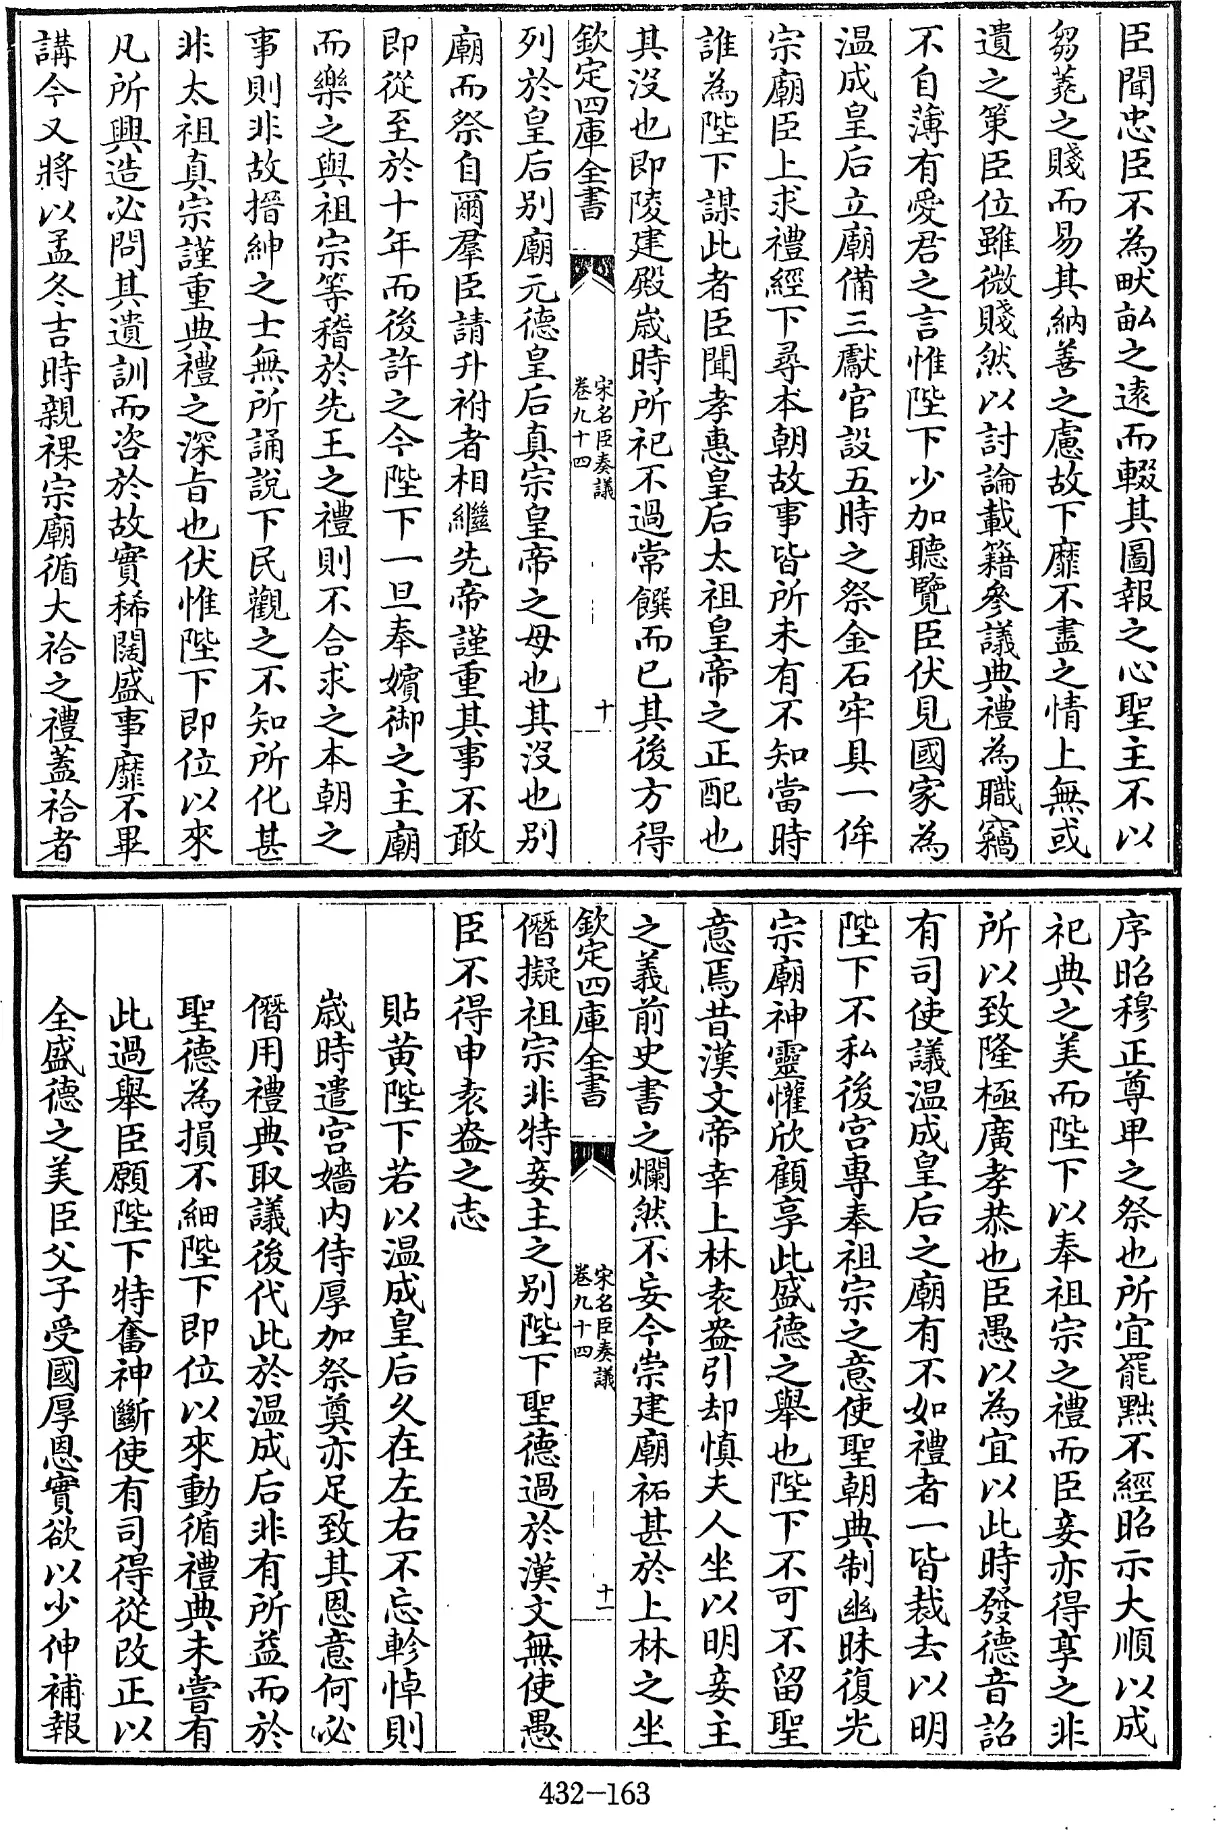 臣聞忠臣不為畎畝之遠而輟其圖報之心聖主不以
芻蕘之賤而易其納善之慮故下靡不盡之情上無或
遺之策臣位雖微賤然以討論載籍參議典禮為職竊
不自薄有愛君之言惟陛下少加聽覽臣伏見國家為
温成皇后立廟備三獻官設五時之祭金石牢具一侔
宗廟臣上求禮經下尋本朝故事皆所未有不知當時
誰為陛下謀此者臣聞孝惠皇后太祖皇帝之正配也
其没也即陵建殿嵗時所祀不過常饌而已其後方得
欽定四庫全書
宋名臣奏議
卷九十四
十
列於皇后别廟元德皇后真宗皇帝之母也其没也别
廟而祭自爾羣臣請升祔者相繼先帝謹重其事不敢
即從至於十年而後許之今陛下一旦奉嬪御之主廟
而樂之與祖宗等稽於先王之禮則不合求之本朝之
事則非故搢紳之士無所誦説下民觀之不知所化甚
非太祖真宗謹重典禮之深旨也伏惟陛下即位以來
凡所興造必問其遺訓而咨於故實稀闊盛事靡不畢
講今又將以孟冬吉時親祼宗廟循大祫之禮蓋祫者
序昭穆正尊卑之祭也所宜罷黜不經昭示大順以成
祀典之美而陛下以奉祖宗之禮而臣妾亦得享之非
所以致隆極廣孝恭也臣愚以為宜以此時發德音詔
有司使議温成皇后之廟有不如禮者一皆裁去以明
陛下不私後宫專奉祖宗之意使聖朝典制幽昧復光
宗廟神靈懽欣顧享此盛德之舉也陛下不可不留聖
意焉昔漢文帝幸上林袁盎引却慎夫人坐以明妾主
之義前史書之爛然不妄今崇建廟祏甚於上林之坐
欽定四庫全書
宋名臣奏議
卷九十四
十一
僭擬祖宗非特妾主之别陛下聖德過於漢文無使愚
臣不得申袁盎之志
貼黄陛下若以温成皇后久在左右不忘軫悼則
嵗時遣宫嬙内侍厚加祭奠亦足致其恩意何必
僭用禮典取議後代此於温成后非有所益而於
聖德為損不細陛下即位以來動循禮典未嘗有
此過舉臣願陛下特奮神斷使有司得從改正以
全盛德之美臣父子受國厚恩實欲以少伸補報
432-163